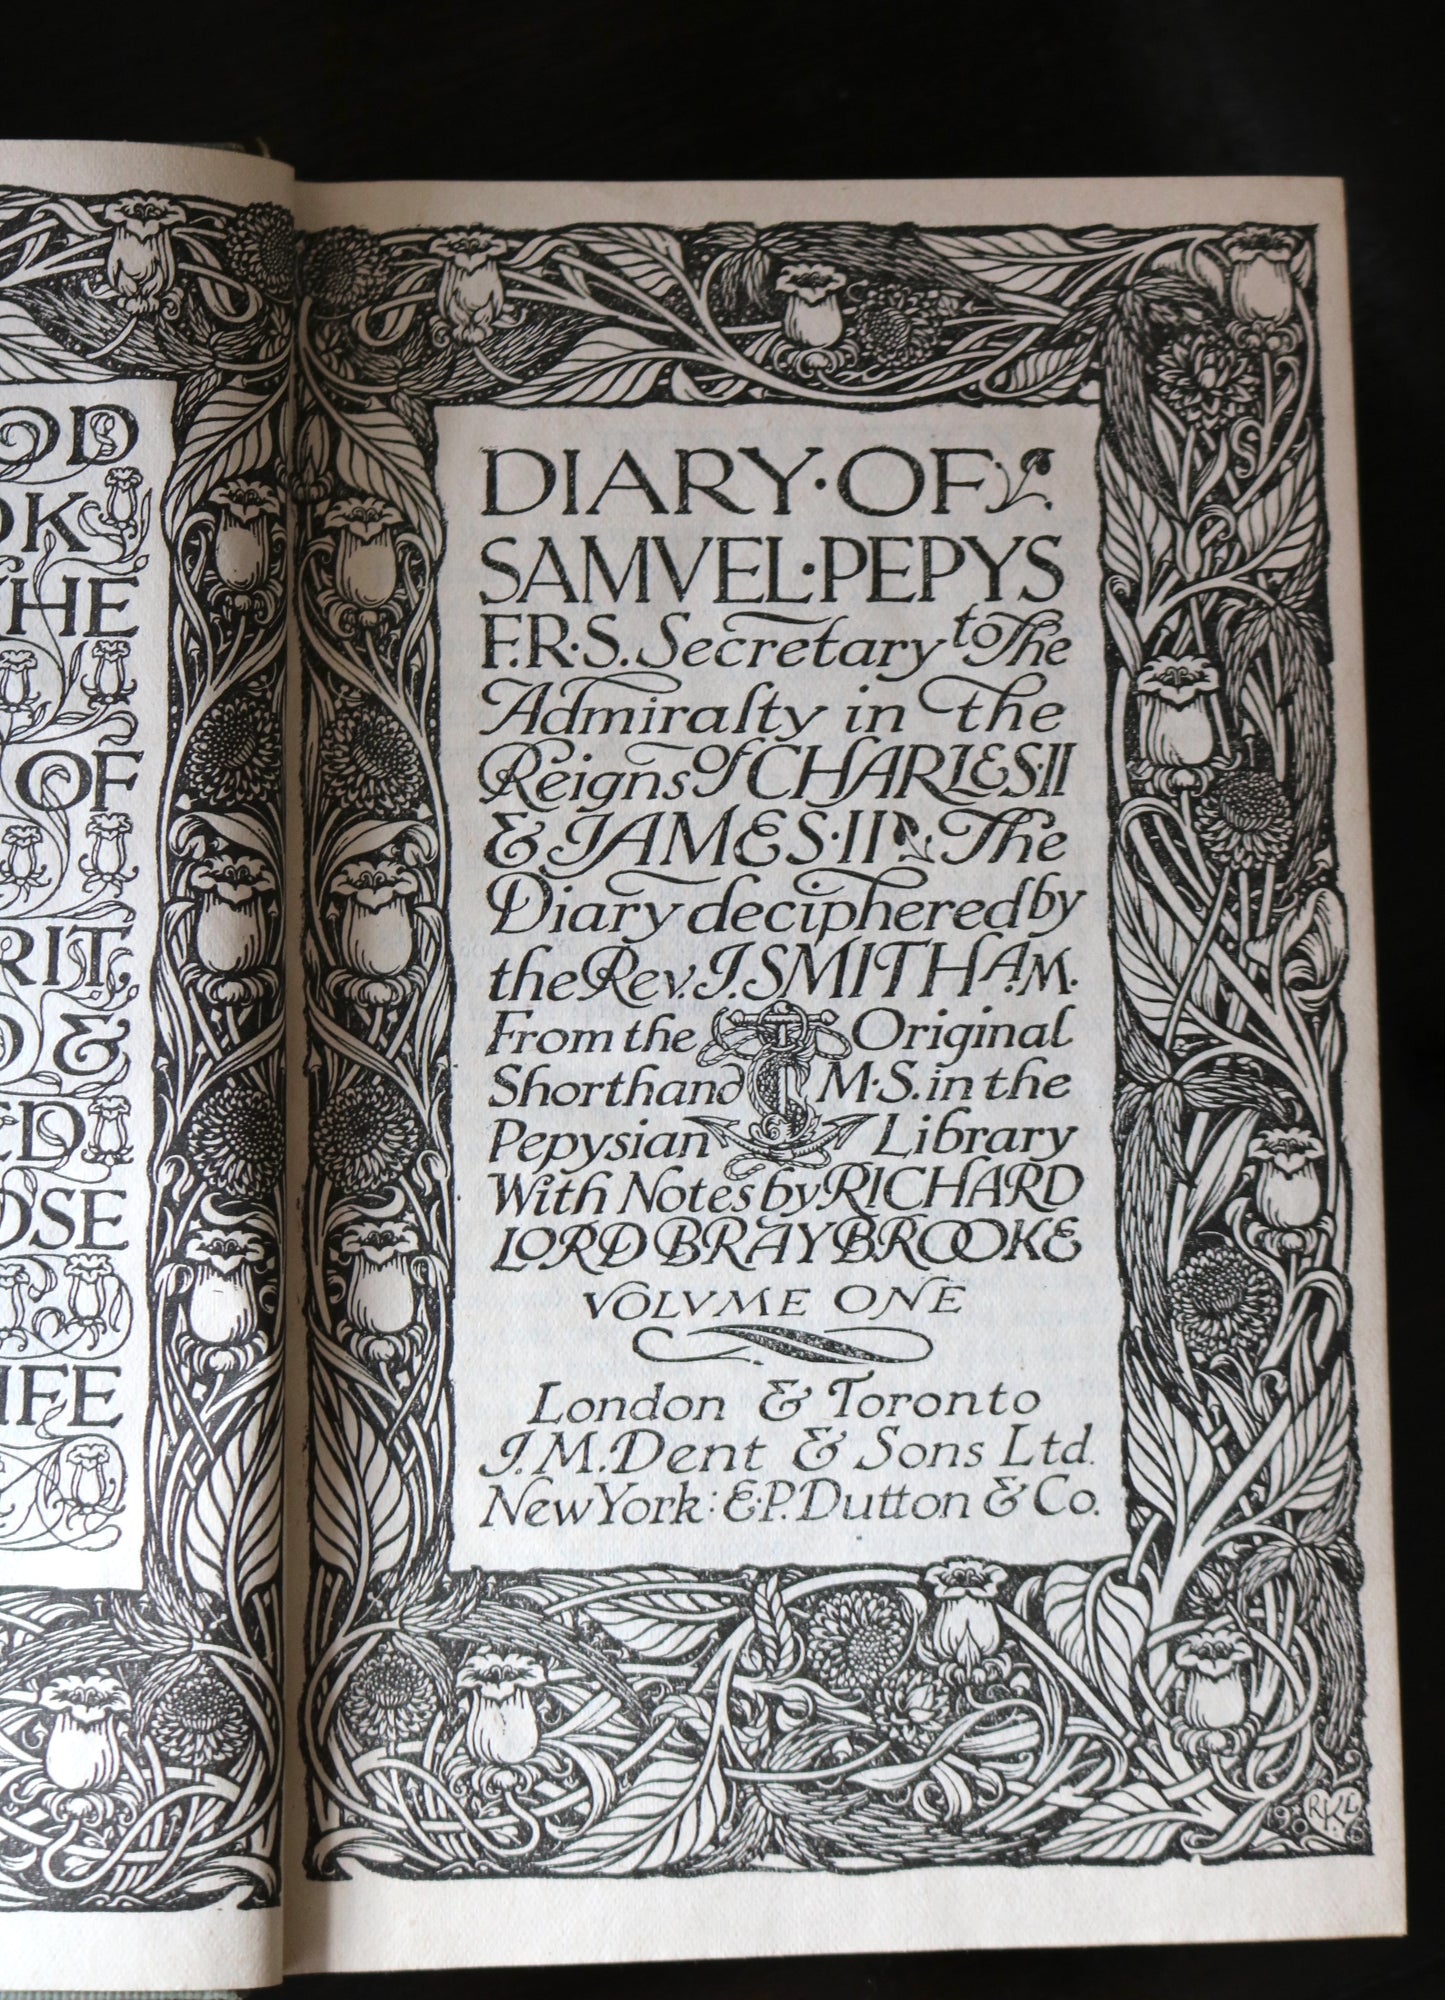 OD
OK
THE
OF
RIT,
D &
ED
OSE
IFE
DIARY·OF
SAMVEL·PEPYS
F.R.S. Secretary to The
Admiralty in the
Reigns of CHARLES·II
& JAMES·II The
Diary deciphered by
the Rev. J. SMITH A.M.
From the Original
Shorthand M·S. in the
Pepysian Library
With Notes by RICHARD
LORD BRAYBROOKE
VOLVME ONE
London & Toronto
J. M. Dent & Sons Ltd.
New York: E·P. Dutton & Co.
RKL